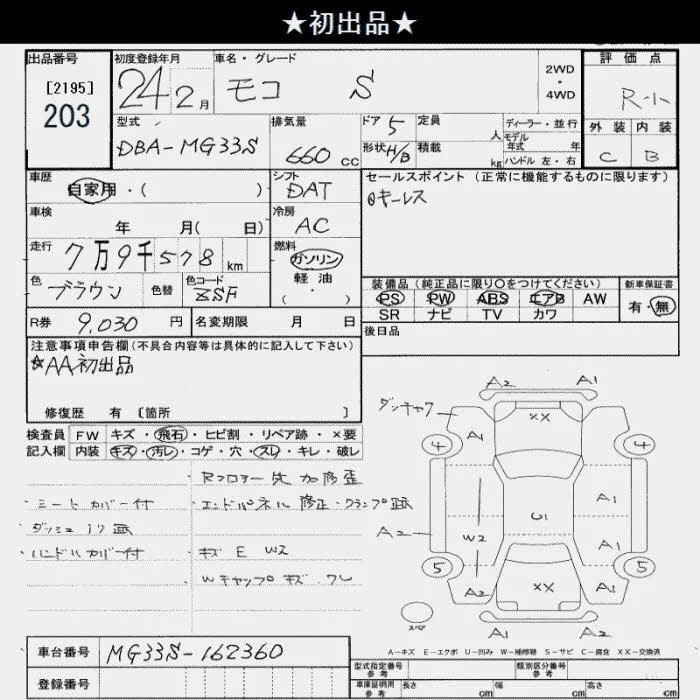 ★初出品★
出品番号 初度登録年月 車名・グレード 評価点
[2195]
203
24 2月 モコ S 2WD・4WD R-小
型式 排気量 ドア 5 定員 人 ディーラー・並行
DBA-MG33S 660cc 形状 H/B 積載 kg モデル年式 年 ハンドル 左・右
外装 内装
C B
車歴 自家用・( ) シフト DAT セールスポイント(正常に機能するものに限ります)
@キーレス
車検 年 月( 日) 冷房 AC
走行 7万9千578km 燃料 ガソリン 軽油 ( ・ )
色 ブラウン 色替 色コード ZSF
装備品(純正品に限り○をつけてください) 新車保証書
PS PW ABS エアB AW 有・無
SR ナビ TV カワ
R券 9,030円 名変期限 月 日 後日品
注意事項申告欄(不具合内容等は具体的に記入して下さい)
☆AA初出品
修復歴 有 〔箇所 〕
検査員 FW キズ・飛石・ヒビ割・リペア跡・×要
記入欄 内装 キズ・汚レ・コゲ・穴・スレ・キレ・破レ
Rフロアー 先 加修歪
・シートカバー付 エンドパネル 修正・クランプ跡
・ダッシュ 跡
・ハンドルカバー付 キズ E W2
Wキャップ キズ・ワレ
A2 A1
ダッチャク XX
4 A1 4
A1
A2 U1
W2 A1
5 XX 5
A2 A1
スペア
A2 A1
A-キズ E-エクボ U-凹み W-補修跡 S-サビ C-腐食 XX-交換済
車台番号 MG33S-162360
登録番号
型式指定番号 参考 類別区分番号 参考
車庫証明用 参考 長さ cm 幅 cm 高さ cm